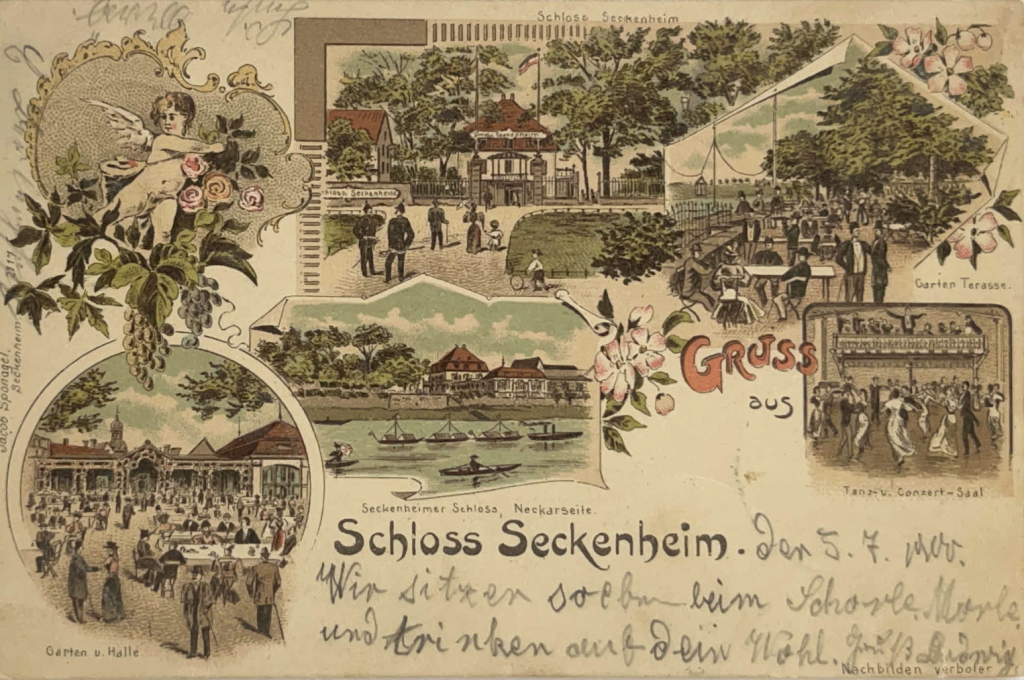 Schloss Seckenheim
Schloss Seckenheim
Garten Terasse.
Gruss
aus
Tanz- u. Conzert-Saal
Seckenheimer Schloss, Neckarseite.
Schloss Seckenheim.
Den 5. 7. 1900.
Wir sitzen soeben beim Schorle Morle
und trinken auf Dein Wohl. Gruß Ludwig
Garten u. Halle
Nachbilden verboten
Jacob Spanagel.
Seckenheim